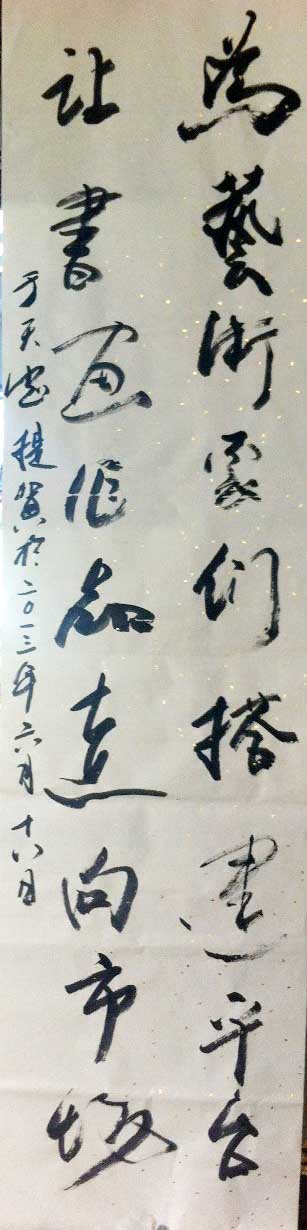 為藝術家们搭建平台
让書画作品走向市场
方天提賀於二〇一三年六月十八日